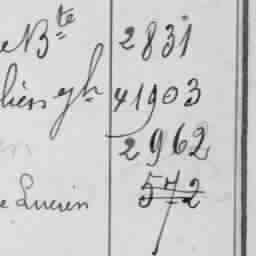 e B^te 2831
liers gh 41903
2962
e Lucien 572